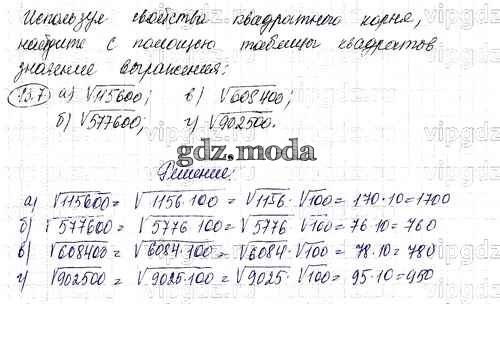 Используя свойства квадратного корня,
найдите с помощью таблицы квадратов
значение выражения:
15.7 а) √115600; в) √608400;
б) √577600; г) √902500.
gdz.moda
Решение:
а) √115600 = √1156·100 = √1156·√100 = 170·10=1700
б) √577600 = √5776·100 = √5776·√100 = 76·10=760
в) √608400 = √6084·100 = √6084·√100 = 78·10=780
г) √902500 = √9025·100 = √9025·√100 = 95·10=950